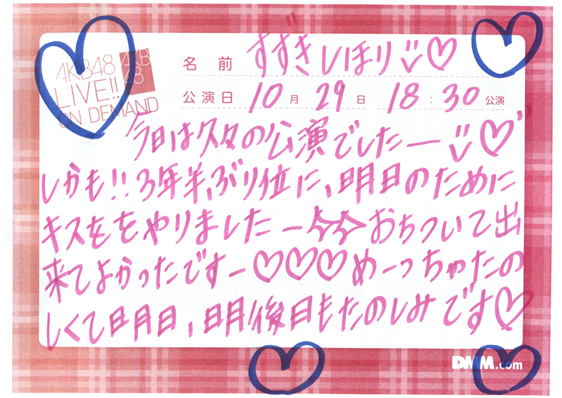 AKB48
LIVE!!
ON DEMAND
AKB
48
名前 すずきしほり
公演日 10月 29日 18:30公演
今日は久々の公演でしたー
しかも!!3年半ぶり位に、明日のために
キスををやりましたー おちついて出
来てよかったですー♡♡♡めーっちゃたの
しくて明日、明後日もたのしみです♡
DMM.com